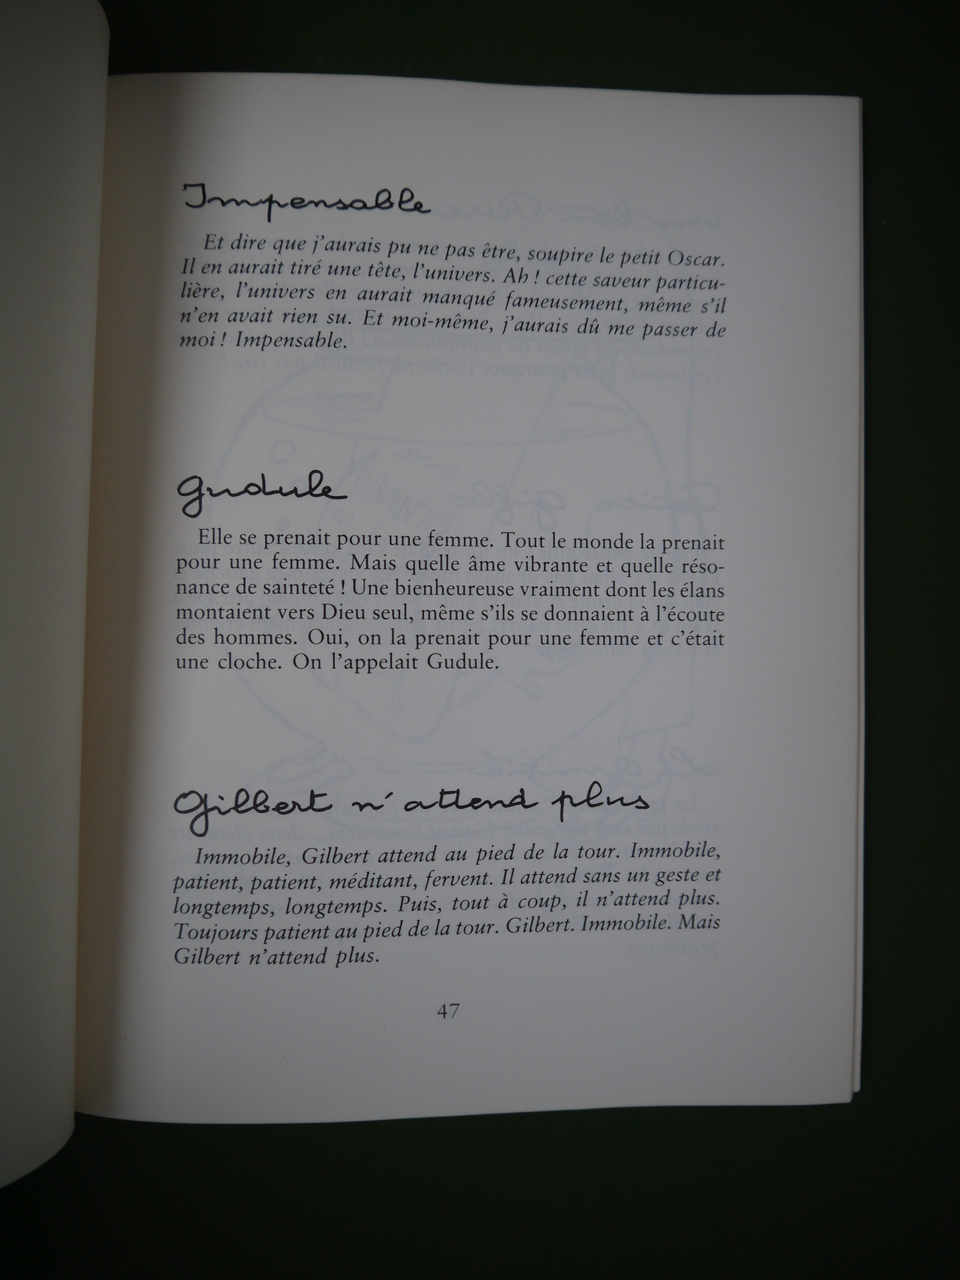 Impensable
Et dire que j'aurais pu ne pas être, soupire le petit Oscar.
Il en aurait tiré une tête, l'univers. Ah ! cette saveur particu-
lière, l'univers en aurait manqué fameusement, même s'il
n'en avait rien su. Et moi-même, j'aurais dû me passer de
moi ! Impensable.
Gudule
Elle se prenait pour une femme. Tout le monde la prenait
pour une femme. Mais quelle âme vibrante et quelle réso-
nance de sainteté ! Une bienheureuse vraiment dont les élans
montaient vers Dieu seul, même s'ils se donnaient à l'écoute
des hommes. Oui, on la prenait pour une femme et c'était
une cloche. On l'appelait Gudule.
Gilbert n'attend plus
Immobile, Gilbert attend au pied de la tour. Immobile,
patient, patient, méditant, fervent. Il attend sans un geste et
longtemps, longtemps. Puis, tout à coup, il n'attend plus.
Toujours patient au pied de la tour. Gilbert. Immobile. Mais
Gilbert n'attend plus.
47